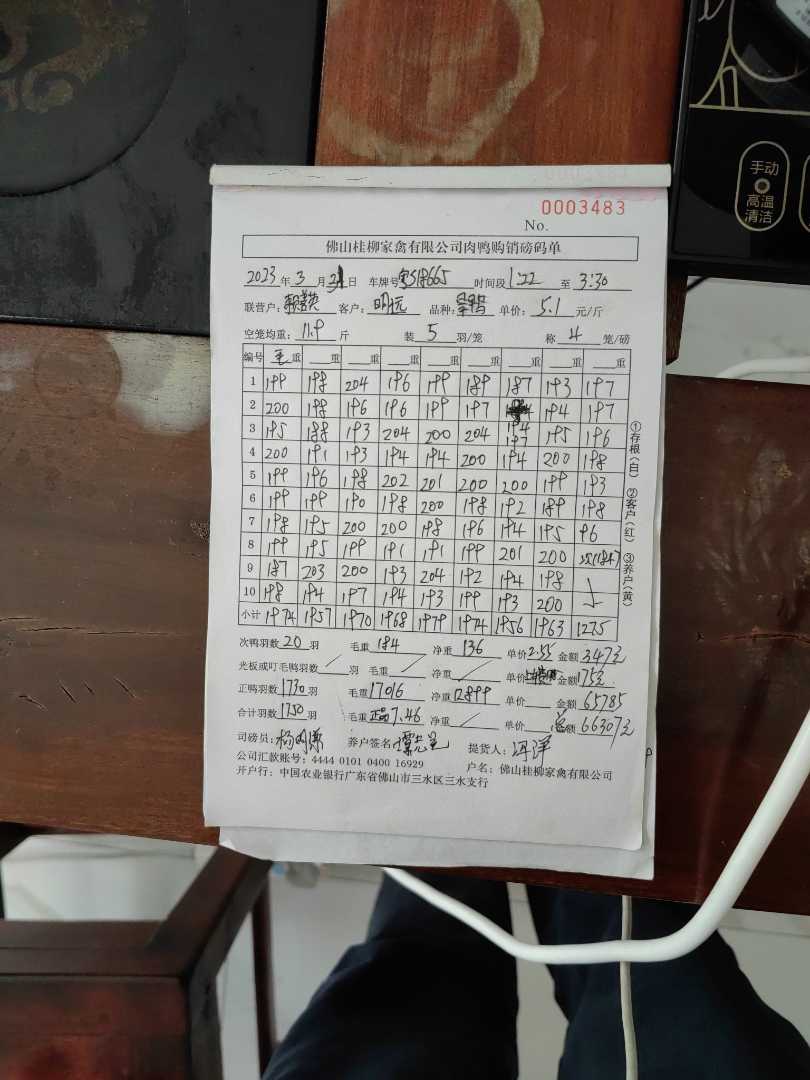 手动
高温
清洁
0003483
No.
佛山桂柳家禽有限公司肉鸭购销磅码单
2023年3月31日 车牌号 S18665 时间段1:22至3:30
联营户: 客户:明远 品种: 单价:5.1元/斤
空笼均重:11.9斤 装5羽/笼 称4笼/磅
编号 毛重 重 重 重 重 重 重 重 重
1 199 198 204 196 199 189 187 193 197
2 200 198 196 196 199 197 194 197
3 195 188 193 204 200 204 194 197 195 196
4 200 191 193 194 194 200 194 200 198
5 199 196 198 202 201 200 200 199 193
6 199 199 190 198 200 198 192 189 198
7 198 195 200 200 198 196 194 195 96
8 199 195 199 191 191 199 201 200
9 187 203 200 193 204 192 194 198
10 198 194 197 194 193 199 193 200
小计 1974 1957 1970 1968 1979 1974 1956 1963 1275
①存根(白) ②客户(红) ③养户(黄)
次鸭羽数20羽 毛重184 净重136 单价2.55 金额347元
光板或叮毛鸭羽数/羽 毛重/ 净重/ 单价 金额175元
正鸭羽数1730羽 毛重17016 净重12899 单价 金额65785
合计羽数1750羽 毛重正品7.46 净重/ 单价 总金额66307元
司磅员: 养户签名: 提货人:海洋
公司汇款账号:4444 0101 0400 16929 户名:佛山桂柳家禽有限公司
开户行:中国农业银行广东省佛山市三水区三水支行